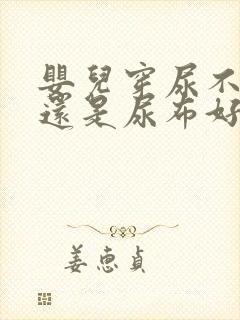 嬰兒穿尿不
還是尿布好
姜恵貞